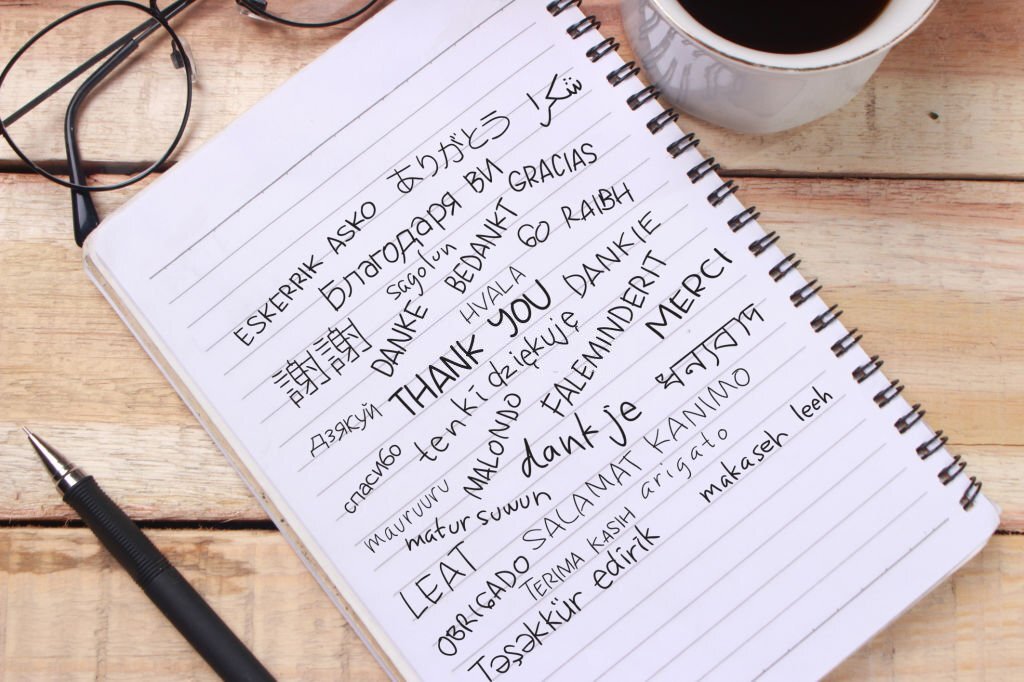 شكرا
ありがとう
ESKERRIK ASKO
Благодаря ВИ
GRACIAS
sagolun
BEDANKT
GO RAIBH
謝謝
DANKE
HVALA
DANKIE
THANK YOU
дзякуй
tenki
dziękuję
FALEMINDERIT
MERCI
спасибо
MALONDO
dank je
ধন্যবাদ
mauruuru
matur suwun
SALAMAT KANIMO
LEAT
arigato
makaseh leeh
OBRIGADO
TERIMA KASIH
Təşəkkür edirik